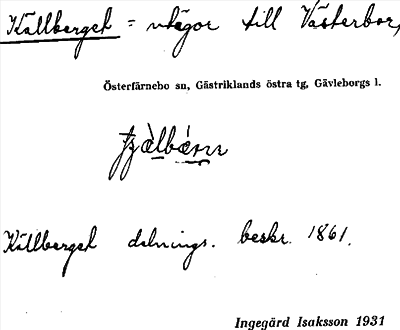 Källberget = utägor till Västerbor,
Österfärnebo sn, Gästriklands östra tg, Gävleborgs l.
Källberget delnings. beskr. 1861.
Ingegärd Isaksson 1931